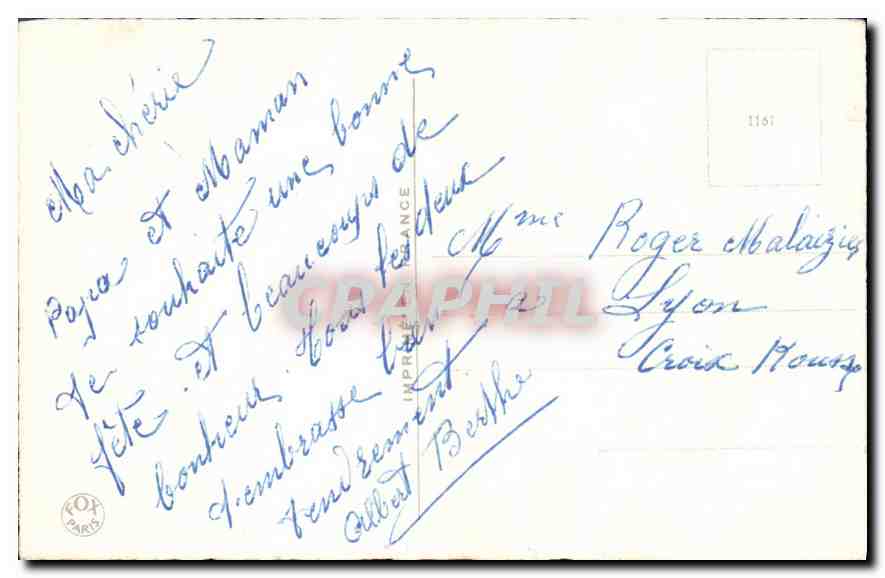 Ma chérie
Papa et Maman
te souhaite une bonne
fête. et beaucoups de
bonheur. tous les deux
t'embrasse bien
tendrement
Albert Berthe
IMPRIMÉ EN FRANCE
1161
Mme Roger Malaizier
a Lyon
Croix Rousse
FOX
PARIS
CPAPHIL